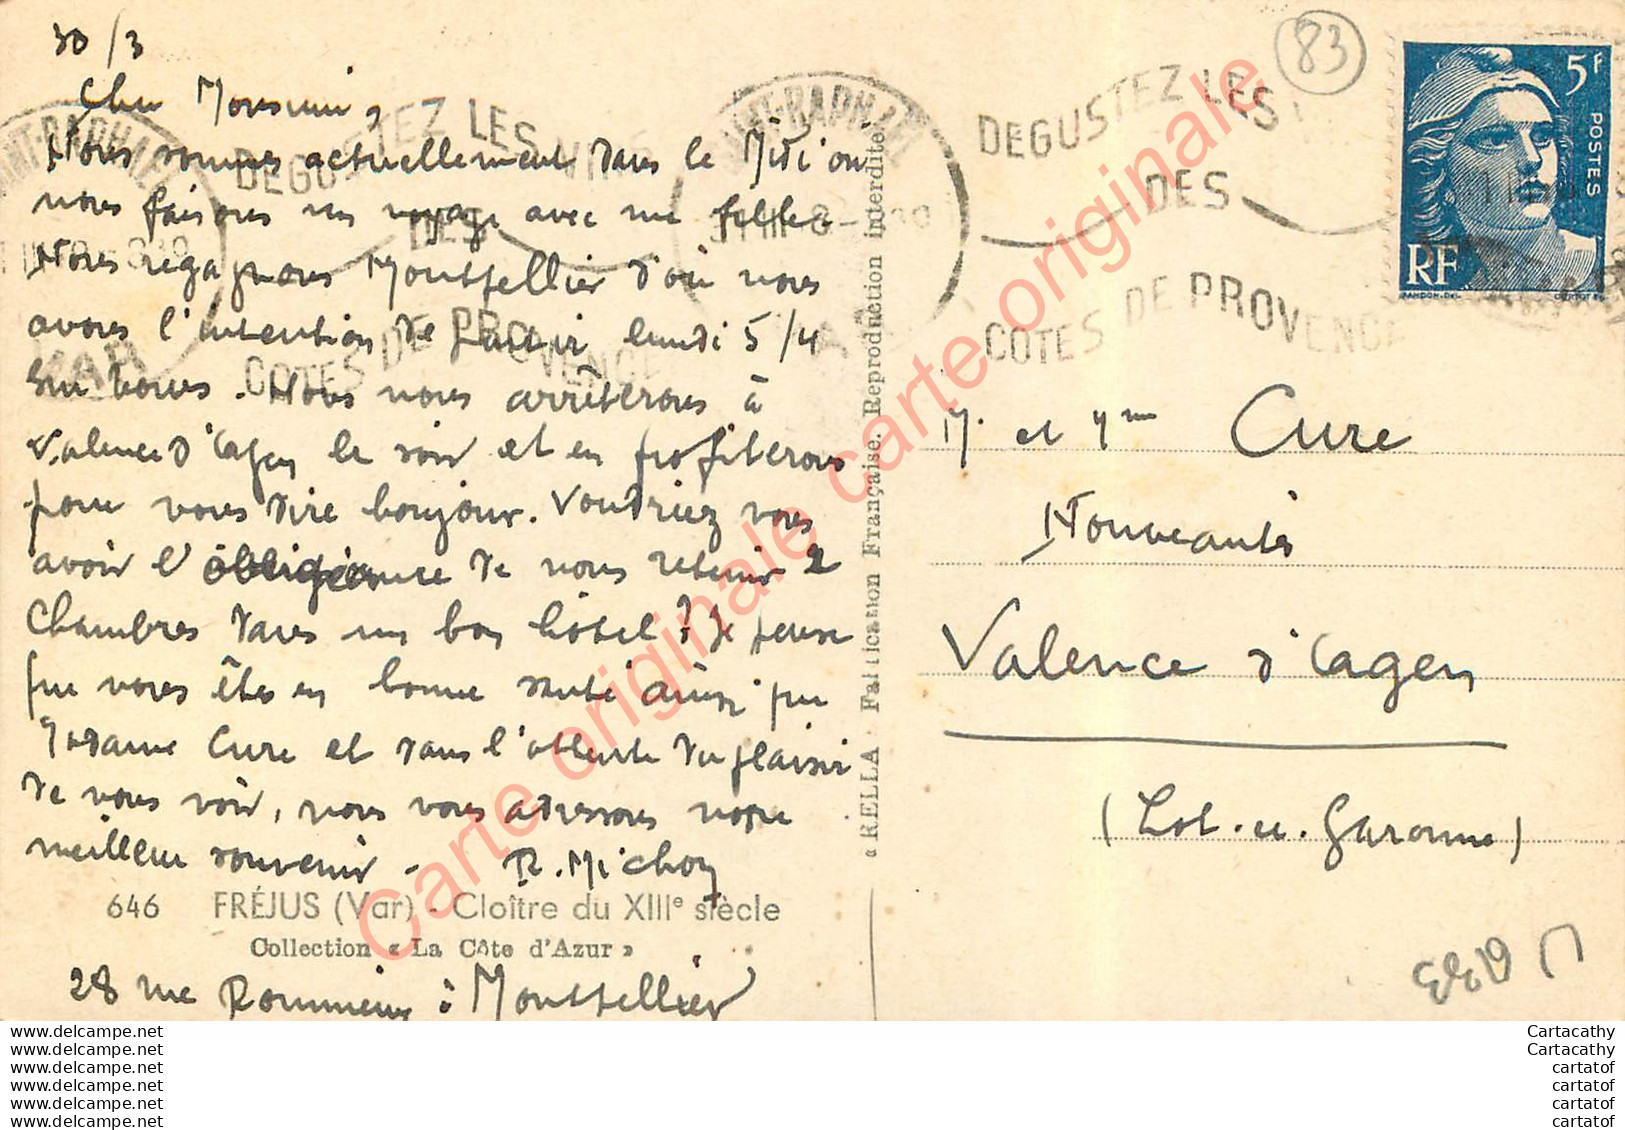 30/3
Cher Monsieur,
Nous sommes actuellement dans le Midi où
nous faisons un voyage avec une
Nous regagnons Montpellier d'où nous
avons l'intention de partir lundi 5/4
sur vous. Nous nous arrêterons à
Valence d'Agen le soir et en profiterons
pour vous dire bonjour. Voudriez vous
avoir l'obligeance de nous retenir 2
chambres dans un bon hôtel ? Je pense
que vous êtes en bonne santé ainsi que
Madame Cure et dans l'attente du plaisir
de vous voir, nous vous adressons notre
meilleur souvenir - R. Michon
646 FRÉJUS (Var) - Cloître du XIIIe siècle
Collection « La Côte d'Azur »
28 rue à Montpellier
« RELLA · Fabrication Française. Reproduction interdite
SAINT-RAPHAEL
VAR
DEGUSTEZ LES VINS
DES
COTES DE PROVENCE
SAINT-RAPHAEL
VAR
DEGUSTEZ LES
DES
COTES DE PROVENCE
83
5F
POSTES
RF
GANDON-DEL.
M. et Mme Cure
Nouveautés
Valence d'Agen
(Lot-et-Garonne)
Carte originale carte originale carte originale
www.delcampe.net
www.delcampe.net
www.delcampe.net
www.delcampe.net
www.delcampe.net
www.delcampe.net
Cartacathy
Cartacathy
cartatof
cartatof
cartatof
cartatof